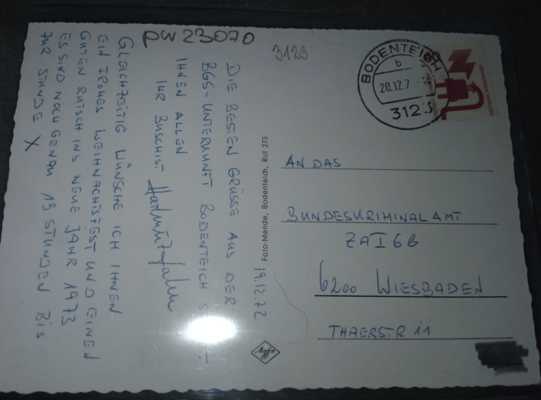 pw23070
3123
DIE BESTEN GRÜSSE AUS DER
BGS-UNTERKUNFT BODENTEICH
IHNEN ALLEN
IHR
GLEICHZEITIG WÜNSCHE ICH IHNEN
EIN FROHES WEIHNACHTSFEST UND EINEN
GUTEN RUTSCH INS NEUE JAHR 1973
ES SIND NOCH GENAU 19 STUNDEN BIS
ZUR STUNDE X
19.12.72
Foto-Mende, Bodenteich, Ruf 273
BODENTEICH
b
20.12.7
312
AN DAS
BUNDESKRIMINALAMT
ZA I 6B
6200 WIESBADEN
THAERSTR 11